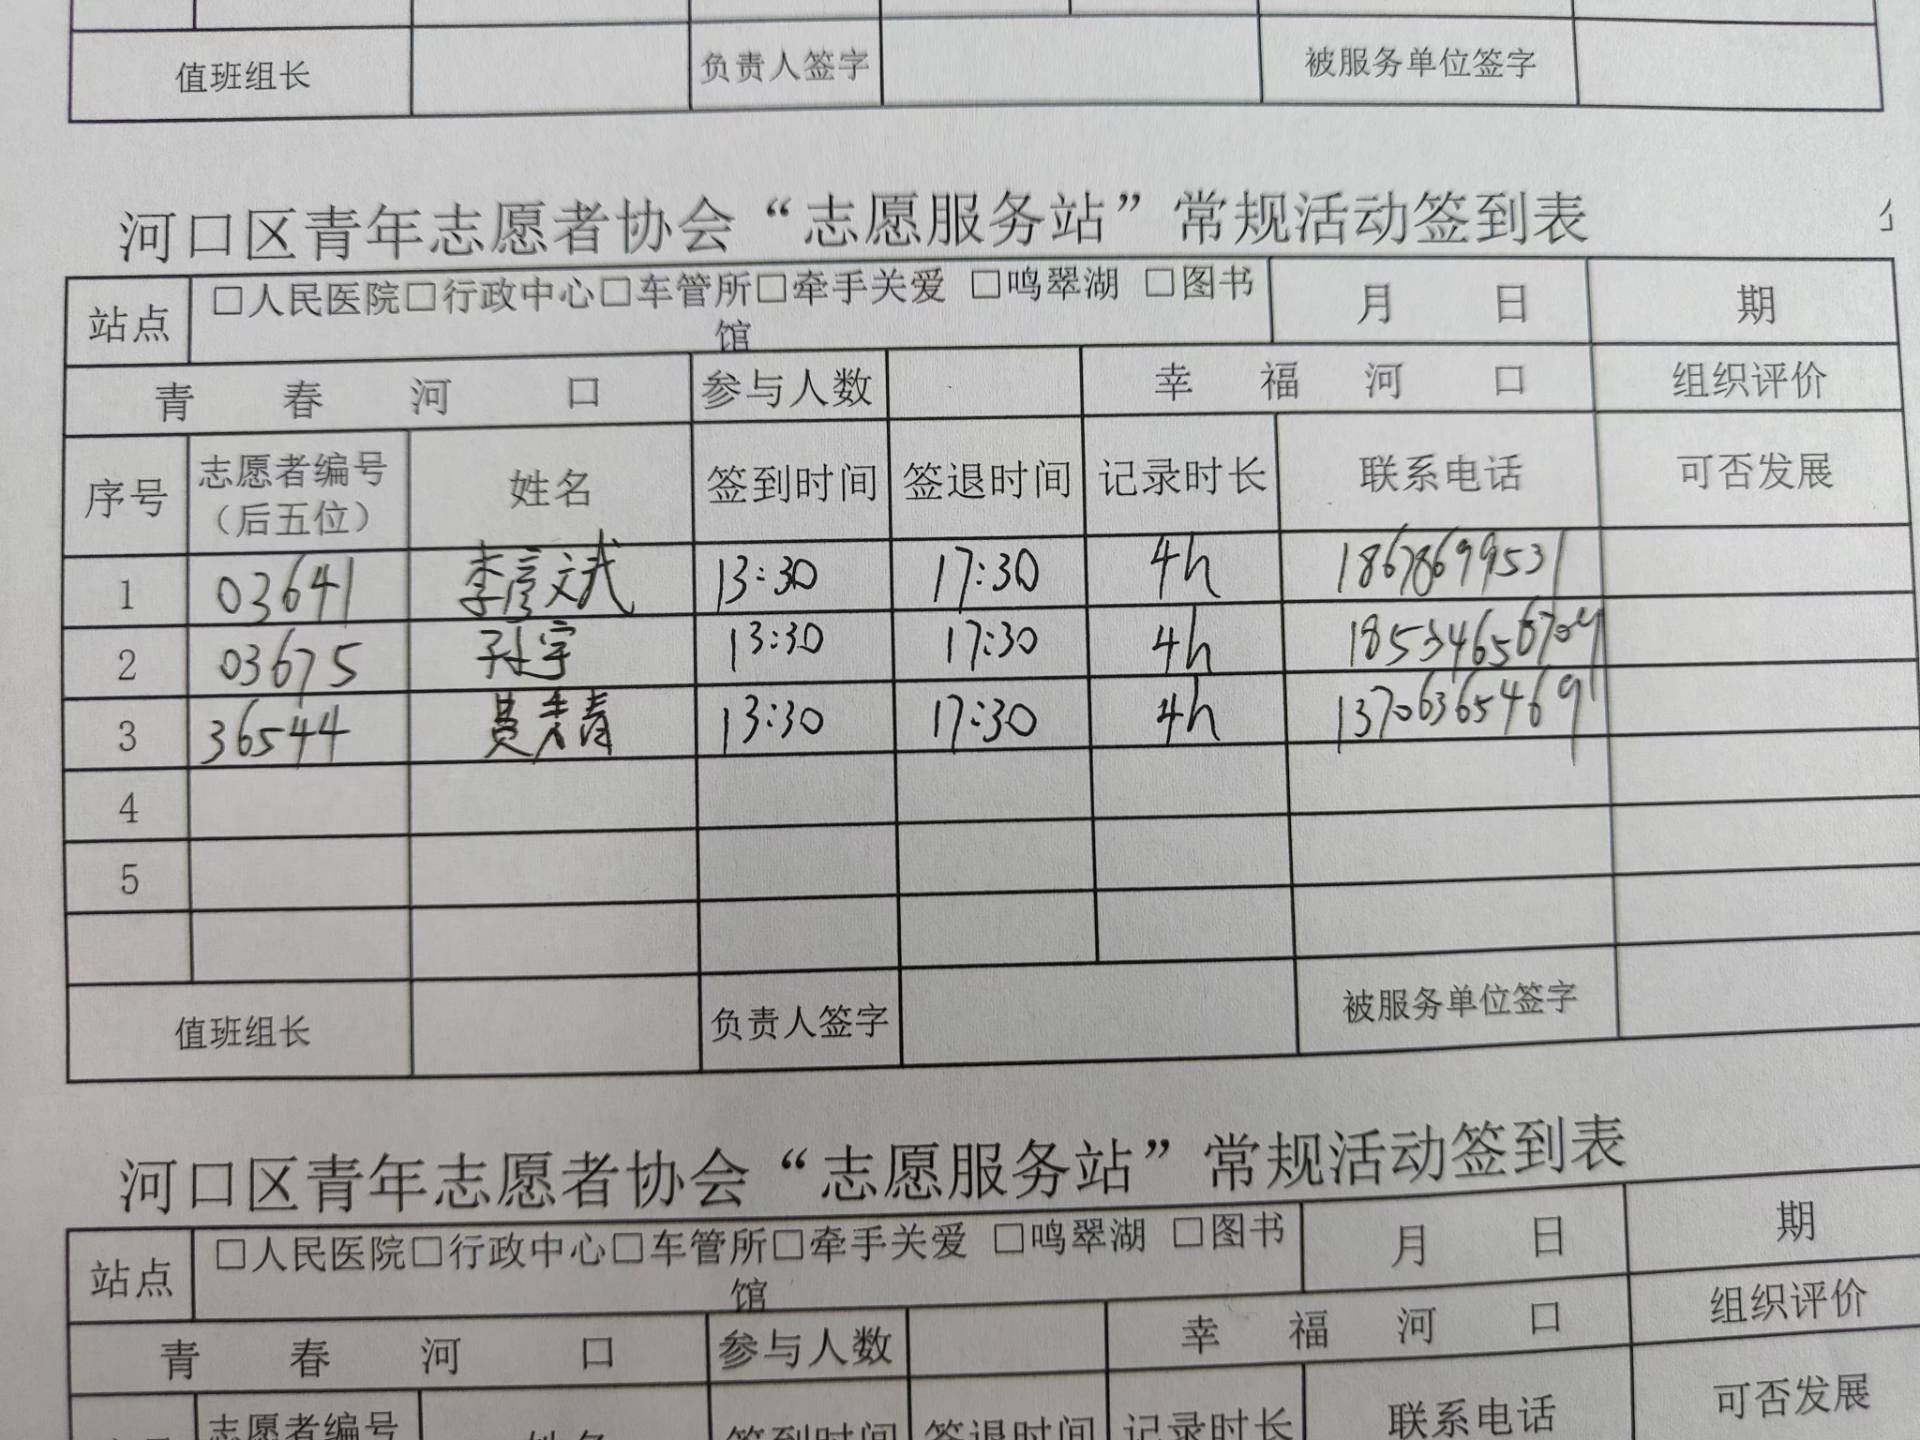 值班组长 负责人签字 被服务单位签字
河口区青年志愿者协会“志愿服务站”常规活动签到表
站点 □人民医院□行政中心□车管所□牵手关爱 □鸣翠湖 □图书馆 月 日 期
青 春 河 口 参与人数 幸 福 河 口 组织评价
序号 志愿者编号（后五位） 姓名 签到时间 签退时间 记录时长 联系电话 可否发展
1 03641 李彦文武 13:30 17:30 4h 18678699531
2 03675 孙宇 13:30 17:30 4h
3 36544 13:30 17:30 4h 13706365469
4
5
值班组长 负责人签字 被服务单位签字
河口区青年志愿者协会“志愿服务站”常规活动签到表
站点 □人民医院□行政中心□车管所□牵手关爱 □鸣翠湖 □图书馆 月 日 期
青 春 河 口 参与人数 幸 福 河 口 组织评价
志愿者编号 姓名 签到时间 签退时间 记录时长 联系电话 可否发展